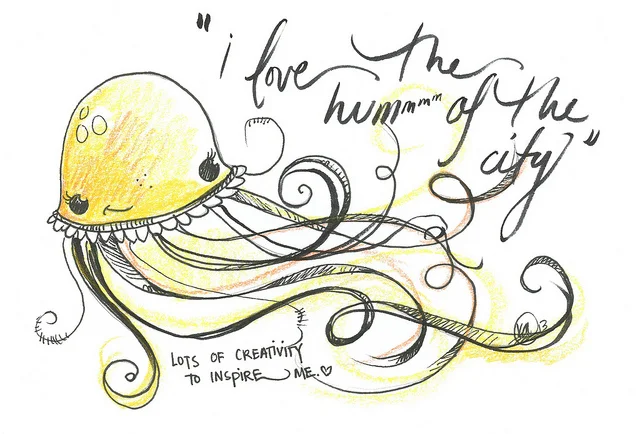 "i love the
hummmmm of the
city"
LOTS OF CREATIVITY
TO INSPIRE ME.♡